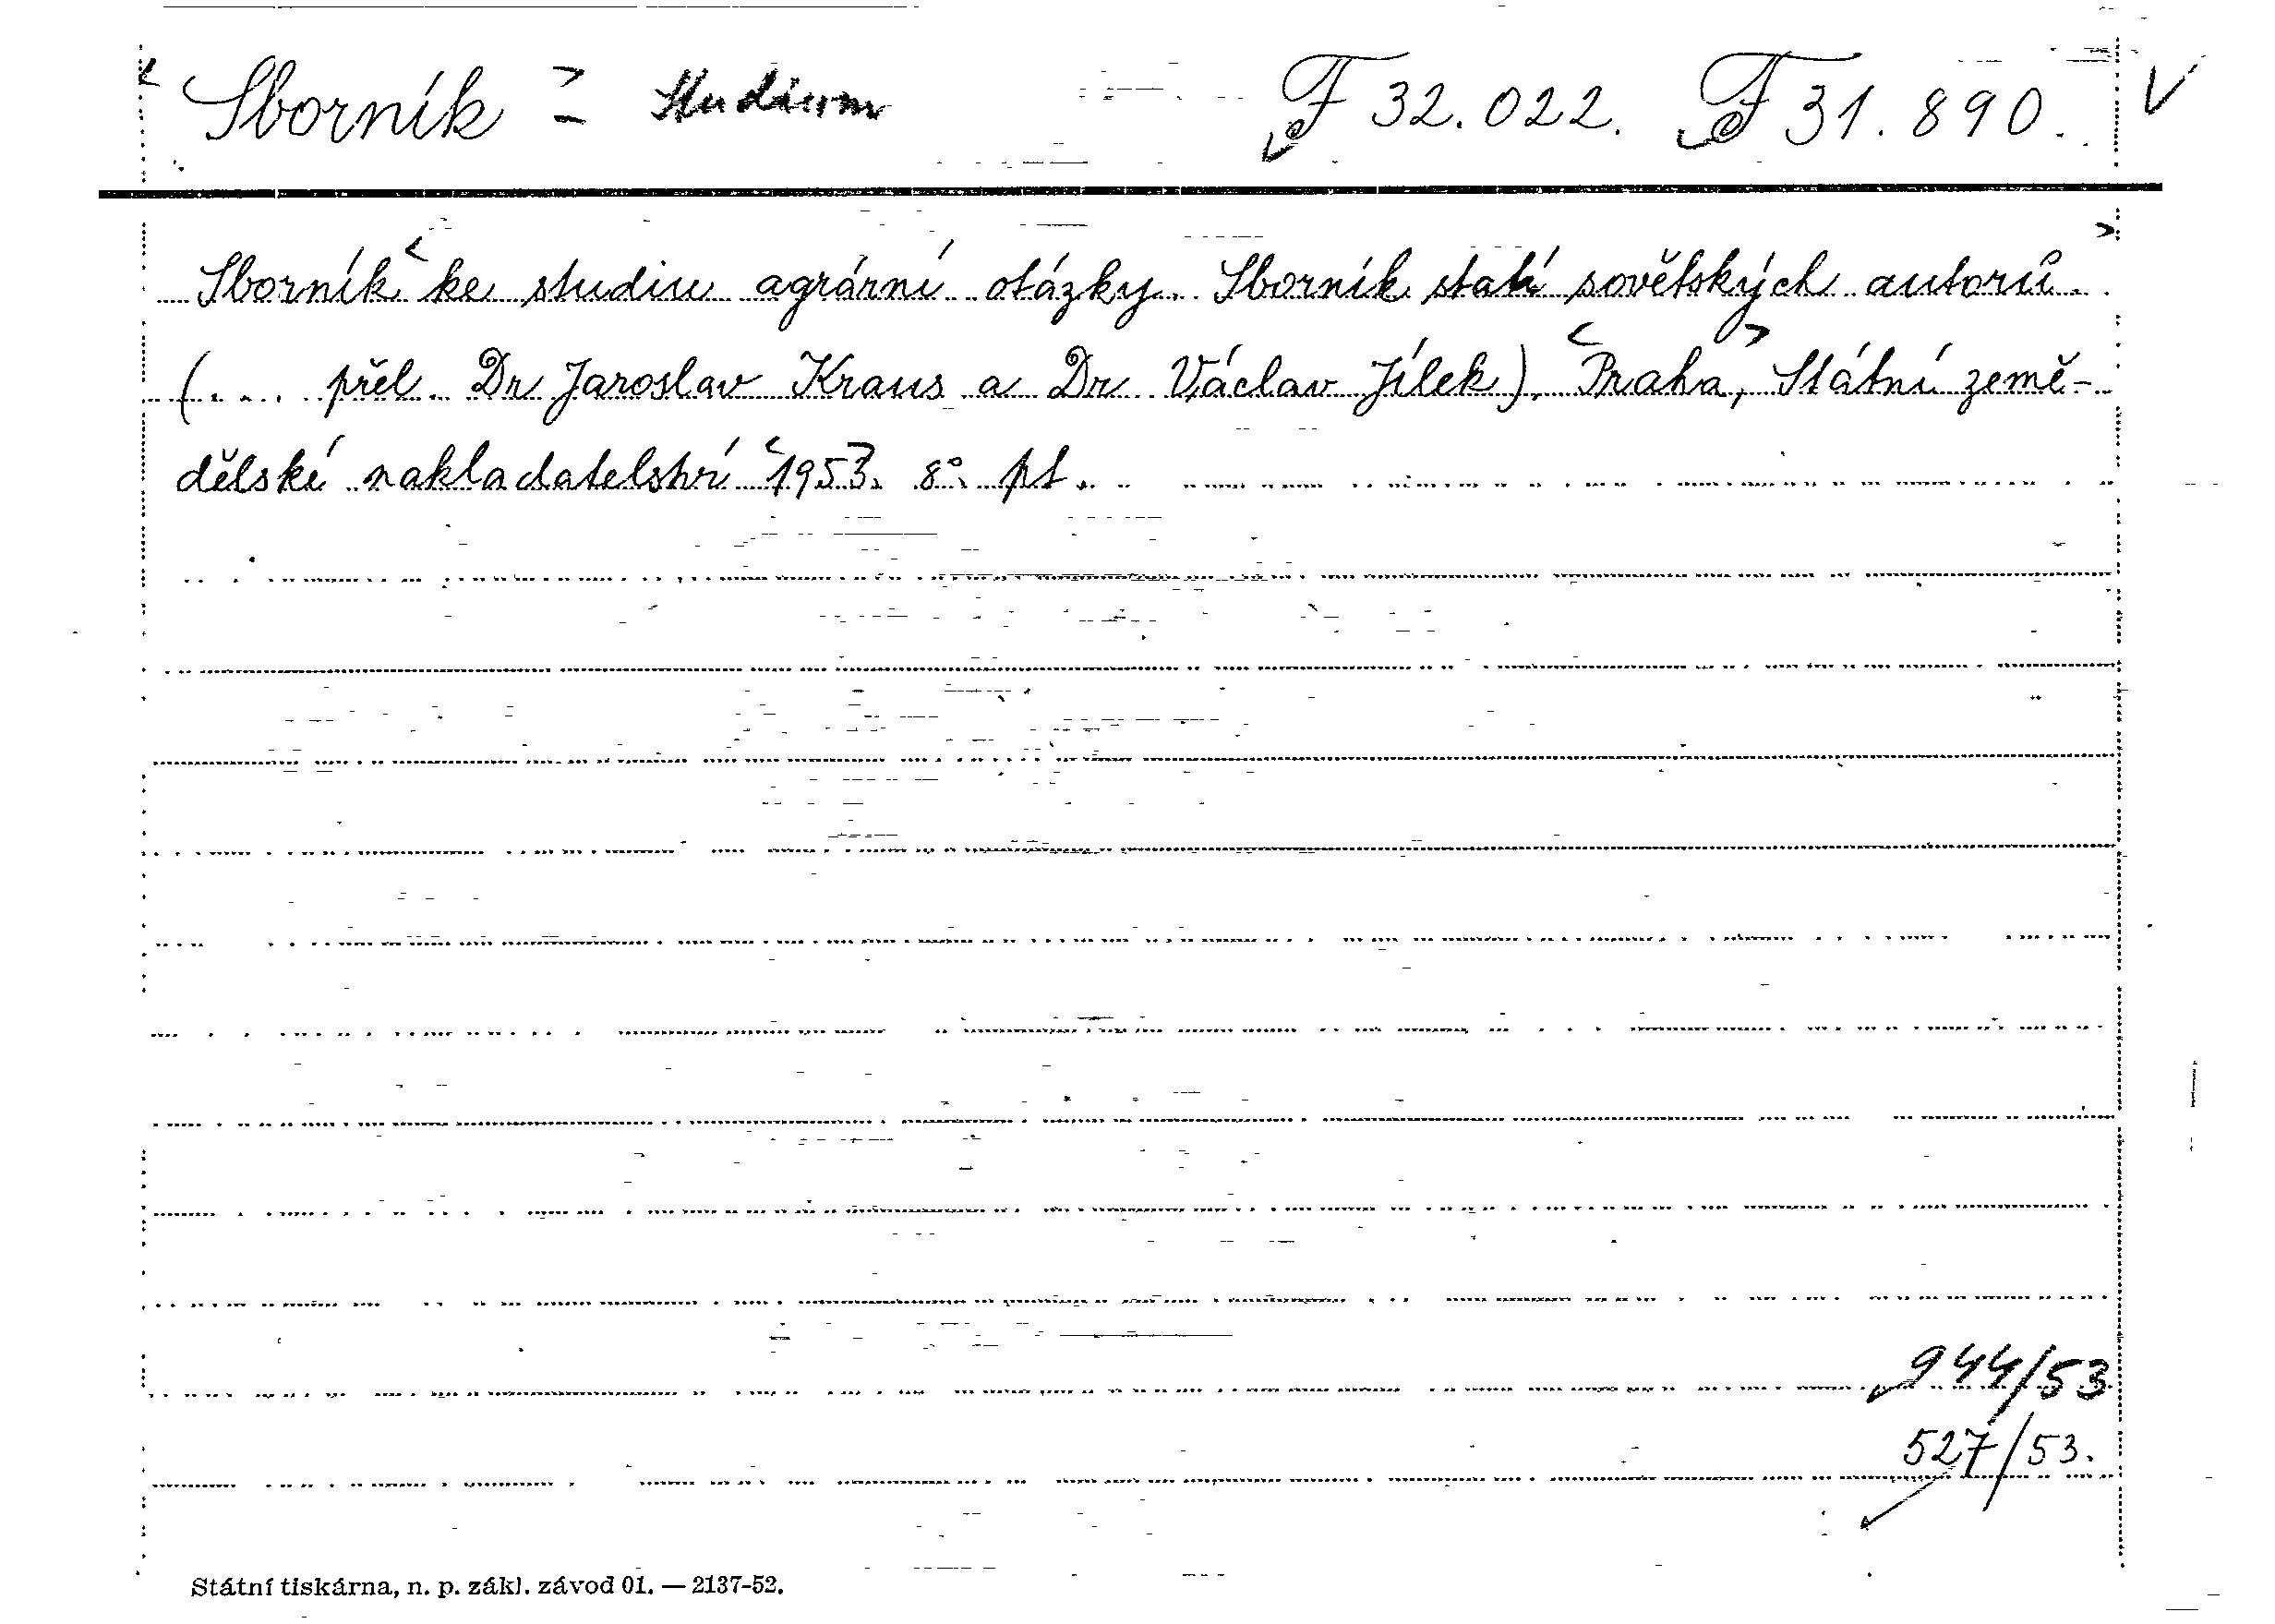 Sborník - studium F 32.022. F 31.890.
Sborník ke studiu agrární otázky. Sborník statí sovětských autorů.
(... přel. Dr Jaroslav Kraus a Dr Václav Jílek). Praha, Státní země-
dělské nakladatelství 1953. 8°. pt.
944/53
527/53.
Státní tiskárna, n. p. zákl. závod 01. — 2137-52.